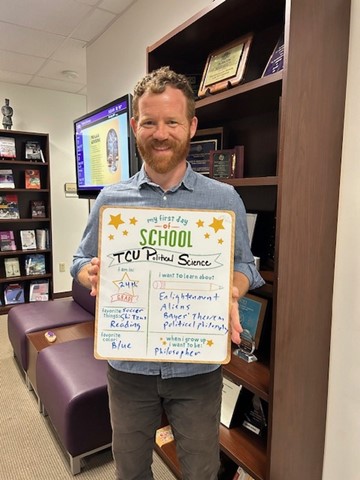 my first day
of
SCHOOL
TCU Political Science
i am in
24th
YEAR
i want to learn about
Enlightenment
Aliens
Bayes' Theorem
political philosophy
favorite
things:
Soccer
Reading
favorite
color:
Blue
when i grow up
i want to be:
Philosopher